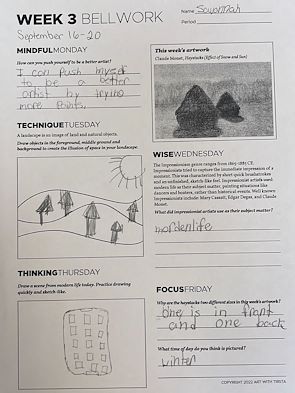 WEEK 3 BELLWORK
Name Savannah
Period
September 16-20
MINDFULMONDAY
How can you push yourself to be a better artist?
I can push myself
to be a better
artist by trying
more paints.
This week's artwork
Claude Monet, Haystacks (Effect of Snow and Sun)
TECHNIQUETUESDAY
A landscape is an image of land and natural objects.
Draw objects in the foreground, middle ground and
background to create the illusion of space in your landscape.
WISEWEDNESDAY
The Impressionism genre ranges from 1865-1885 CE.
Impressionists tried to capture the immediate impression of a
moment. This was characterized by short quick brushstrokes
and an unfinished, sketch-like feel. Impressionist artists used
modern life as their subject matter, painting situations like
dancers and boaters, rather than historical events. Well known
impressionists include: Mary Cassatt, Edgar Degas, and Claude
Monet.
What did impressionist artists use as their subject matter?
mordenlife
THINKINGTHURSDAY
Draw a scene from modern life today. Practice drawing
quickly and sketch-like.
FOCUSFRIDAY
Why are the haystacks two different sizes in this week's artwork?
one is in front
and one back
What time of day do you think is pictured?
winter
COPYRIGHT 2022 ART WITH TRISTA